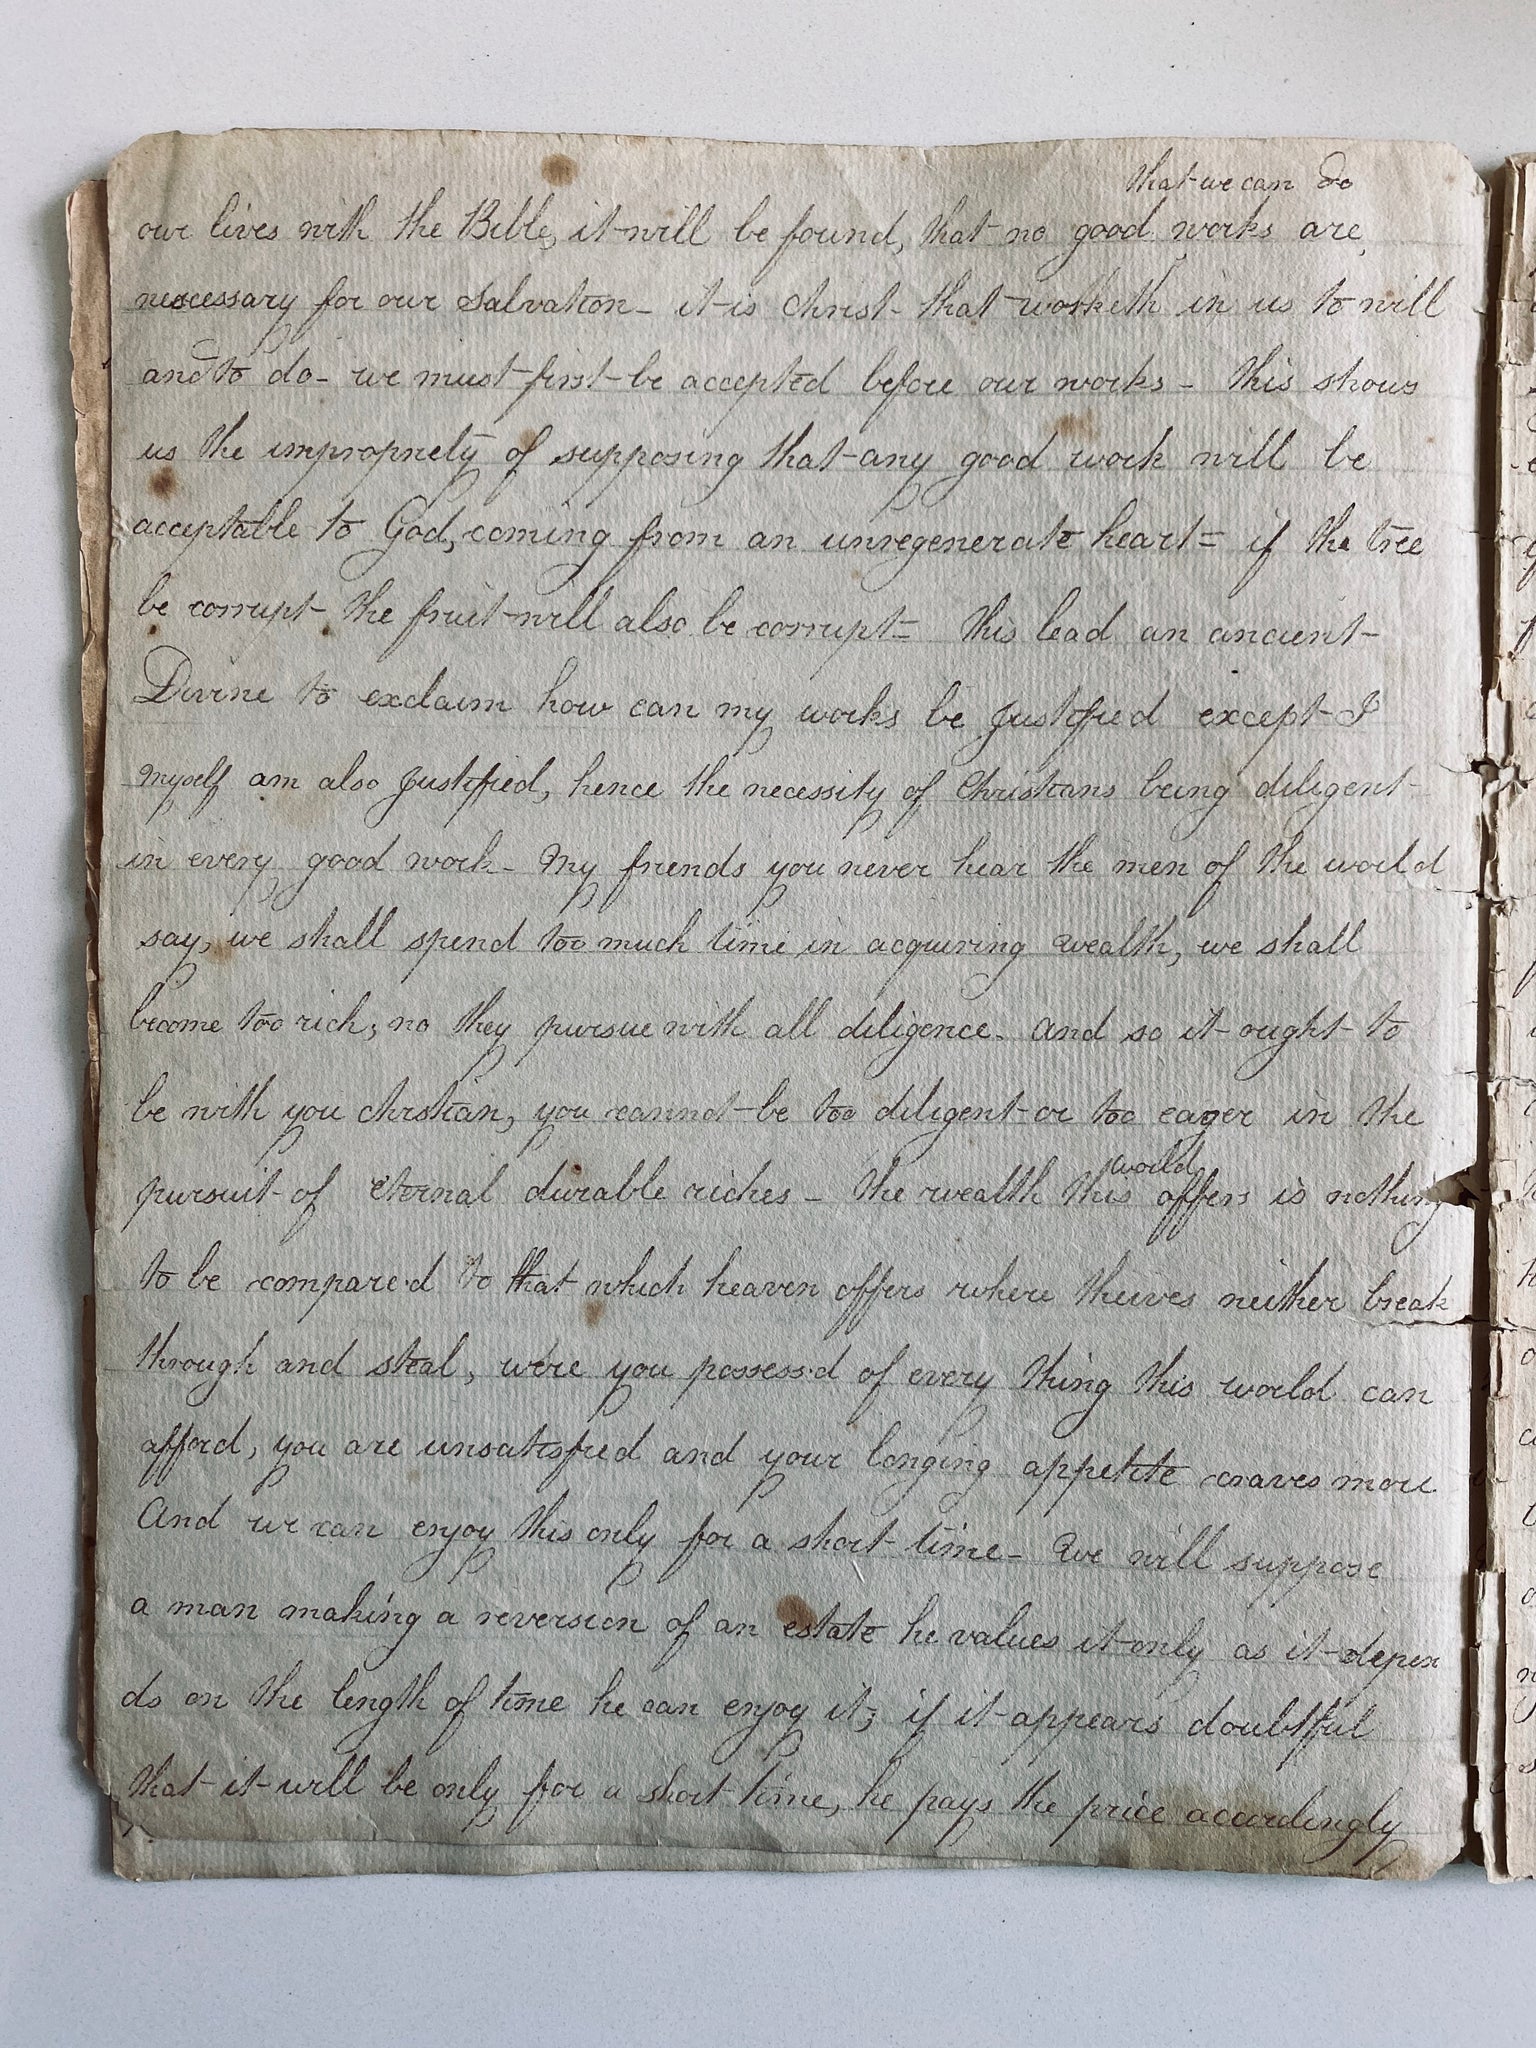 that we can do
our lives with the Bible, it will be found, that no good works are,
nescessary for our Salvation - it is Christ - that worketh in us to will
and to do - we must first be accepted before our works - this shows
us the impropriety of supposing that any good work will be
acceptable to God, coming from an unregenerate heart = if the tree
be corrupt the fruit will also be corrupt = this lead an ancient
Divine to exclaim how can my works be Justified except I
myself am also Justified, hence the necessity of Christians being diligent
in every good work - My friends you never hear the men of the world
say, we shall spend too much time in acquiring wealth, we shall
become too rich, no they pursue with all diligence. and so it ought to
be with you christian, you cannot be too diligent or too eager in the
world
pursuit of eternal durable riches - the wealth this offers is nothing
to be compare'd to that which heaven offers where theives neither break
through and steal, were you possess'd of every thing this world can
afford, you are unsatisfied and your longing appetite craves more
And we can enjoy this only for a short time - We will suppose
a man making a reversion of an estate he values it only as it depen
ds on the length of time he can enjoy it; if it appears doubtful
that it will be only for a short time, he pays the price accordingly